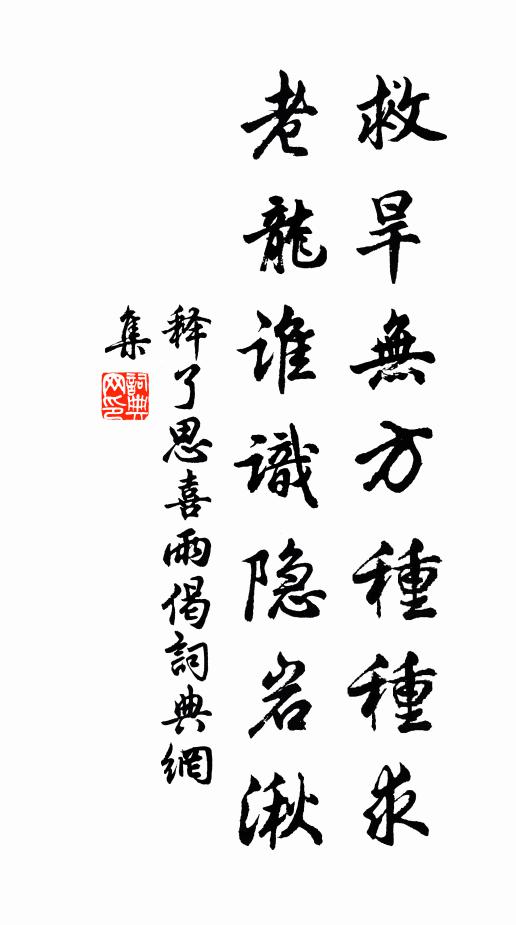 救旱無方種種求
老龍誰識隐岩湫
释了思喜雨偈詞典網
集
詞典网印